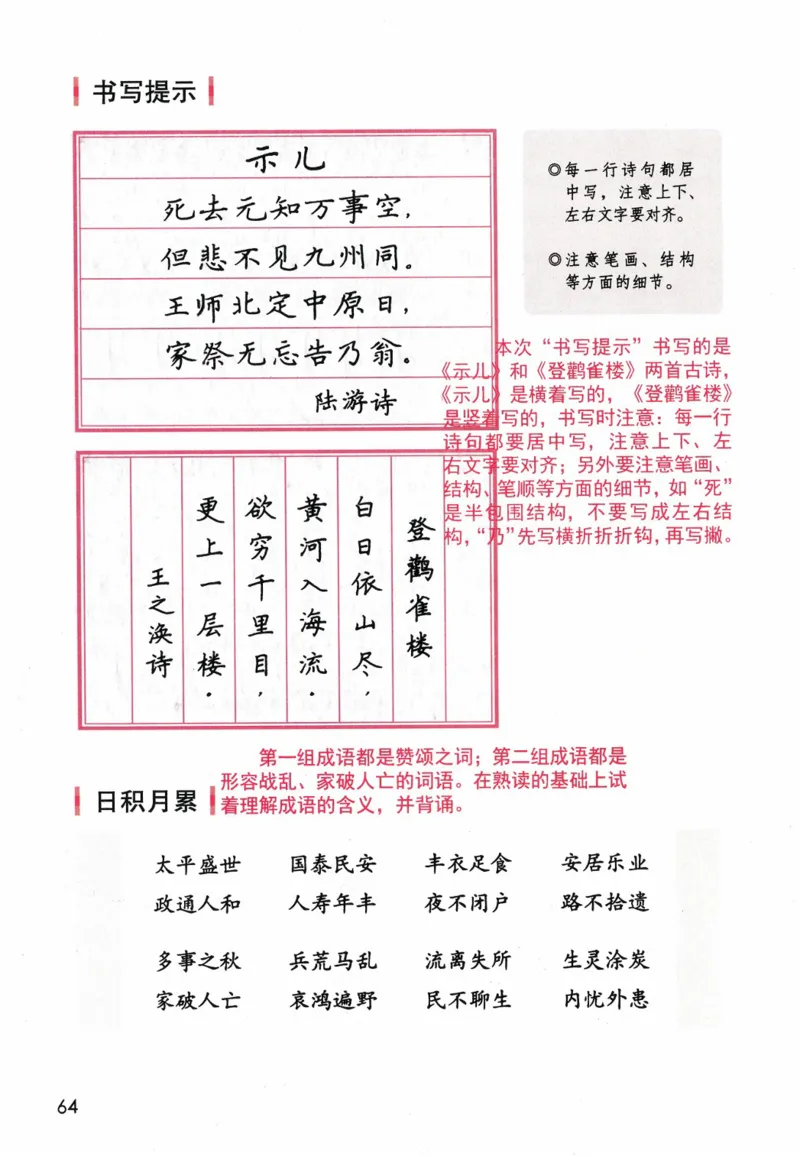 书写提示
示儿
死去元知万事空，
但悲不见九州同。
王师北定中原日，
家祭无忘告乃翁。
陆游诗
◎每一行诗句都居
中写，注意上下、
左右文字要对齐。
◎注意笔画、结构
等方面的细节。
本次“书写提示”书写的是
《示儿》和《登鹳雀楼》两首古诗，
《示儿》是横着写的，《登鹳雀楼》
是竖着写的，书写时注意：每一行
诗句都要居中写，注意上下、左
右文字要对齐；另外要注意笔画、
结构、笔顺等方面的细节，如“死”
是半包围结构，不要写成左右结
构，“乃”先写横折折折钩，再写撇。
登鹳雀楼
白日依山尽，
黄河入海流。
欲穷千里目，
更上一层楼。
王之涣诗
第一组成语都是赞颂之词；第二组成语都是
形容战乱、家破人亡的词语。在熟读的基础上试
着理解成语的含义，并背诵。
日积月累
太平盛世 国泰民安 丰衣足食 安居乐业
政通人和 人寿年丰 夜不闭户 路不拾遗
多事之秋 兵荒马乱 流离失所 生灵涂炭
家破人亡 哀鸿遍野 民不聊生 内忧外患
64